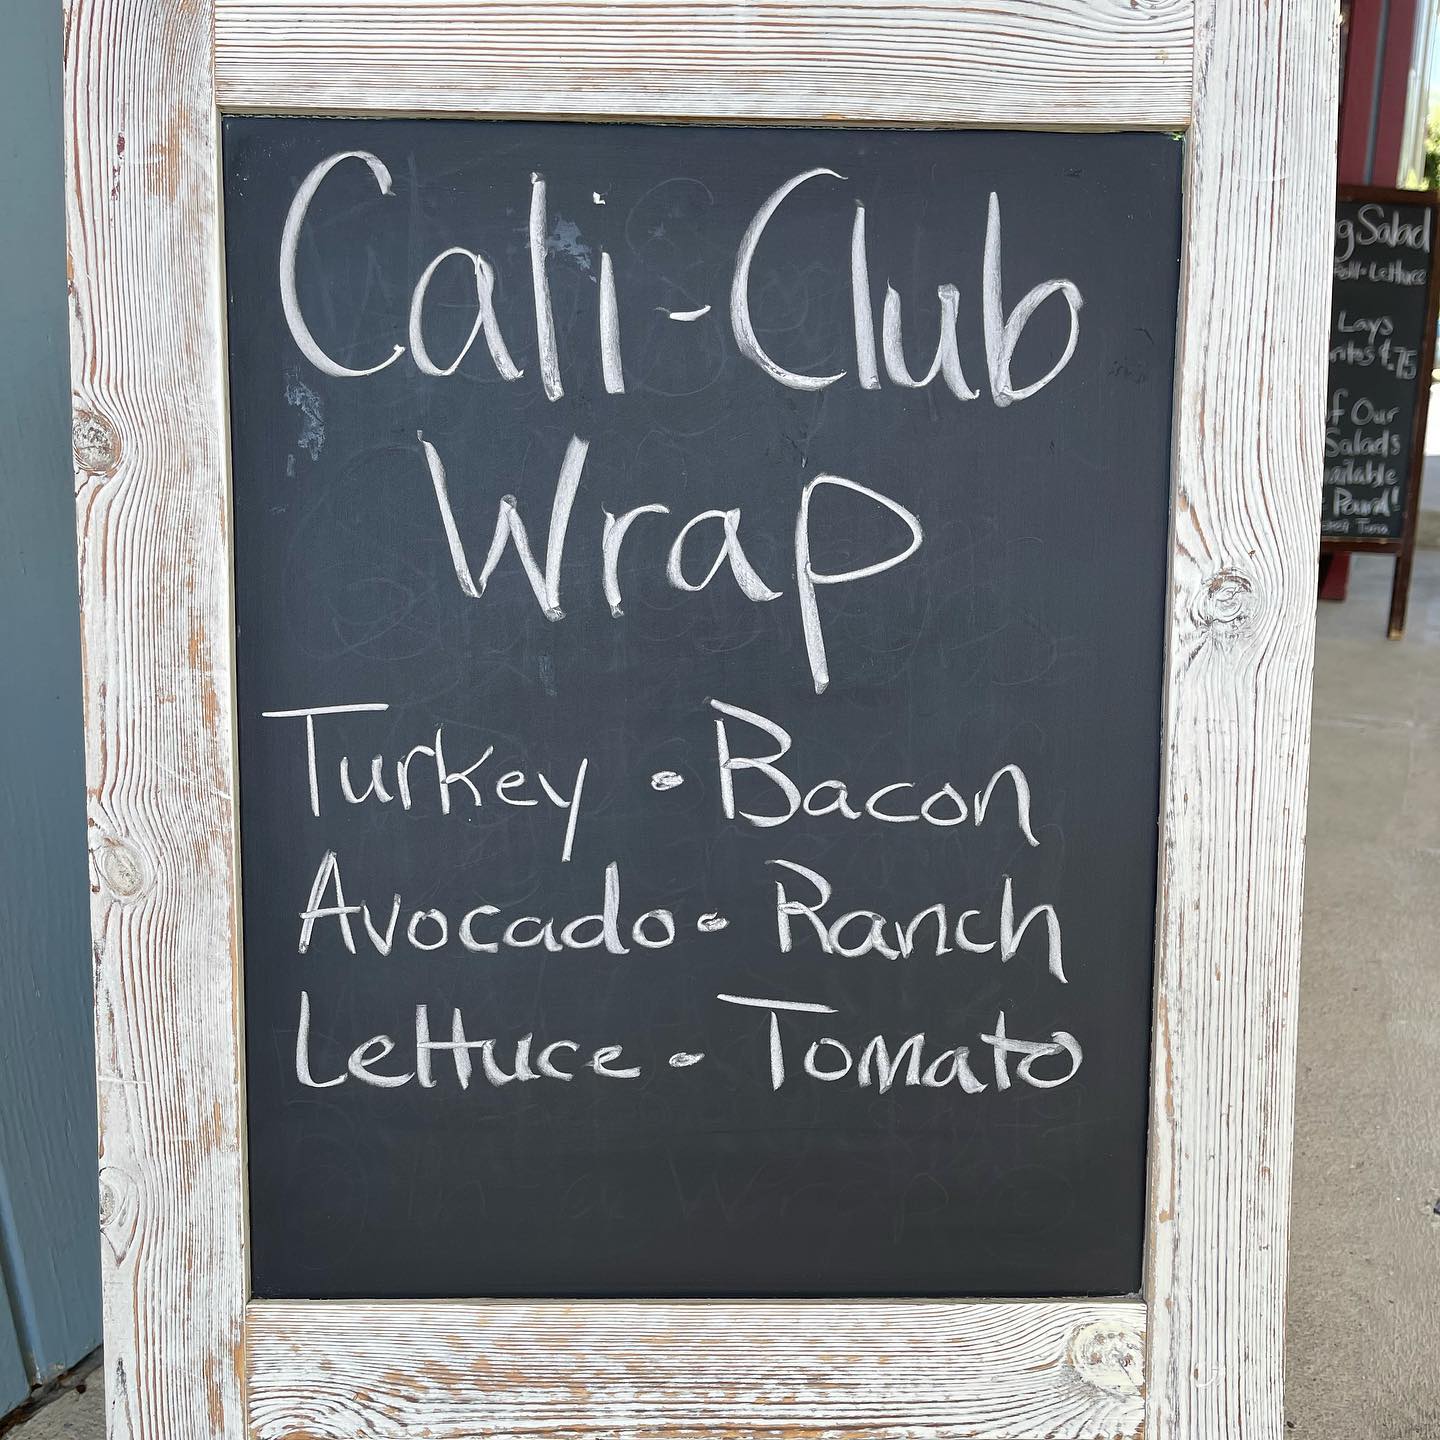 Cali-Club
Wrap
Turkey • Bacon
Avocado • Ranch
Lettuce • Tomato
g Salad
Lettuce
Lays
.75
f Our
Salads
Pound!
Tuna